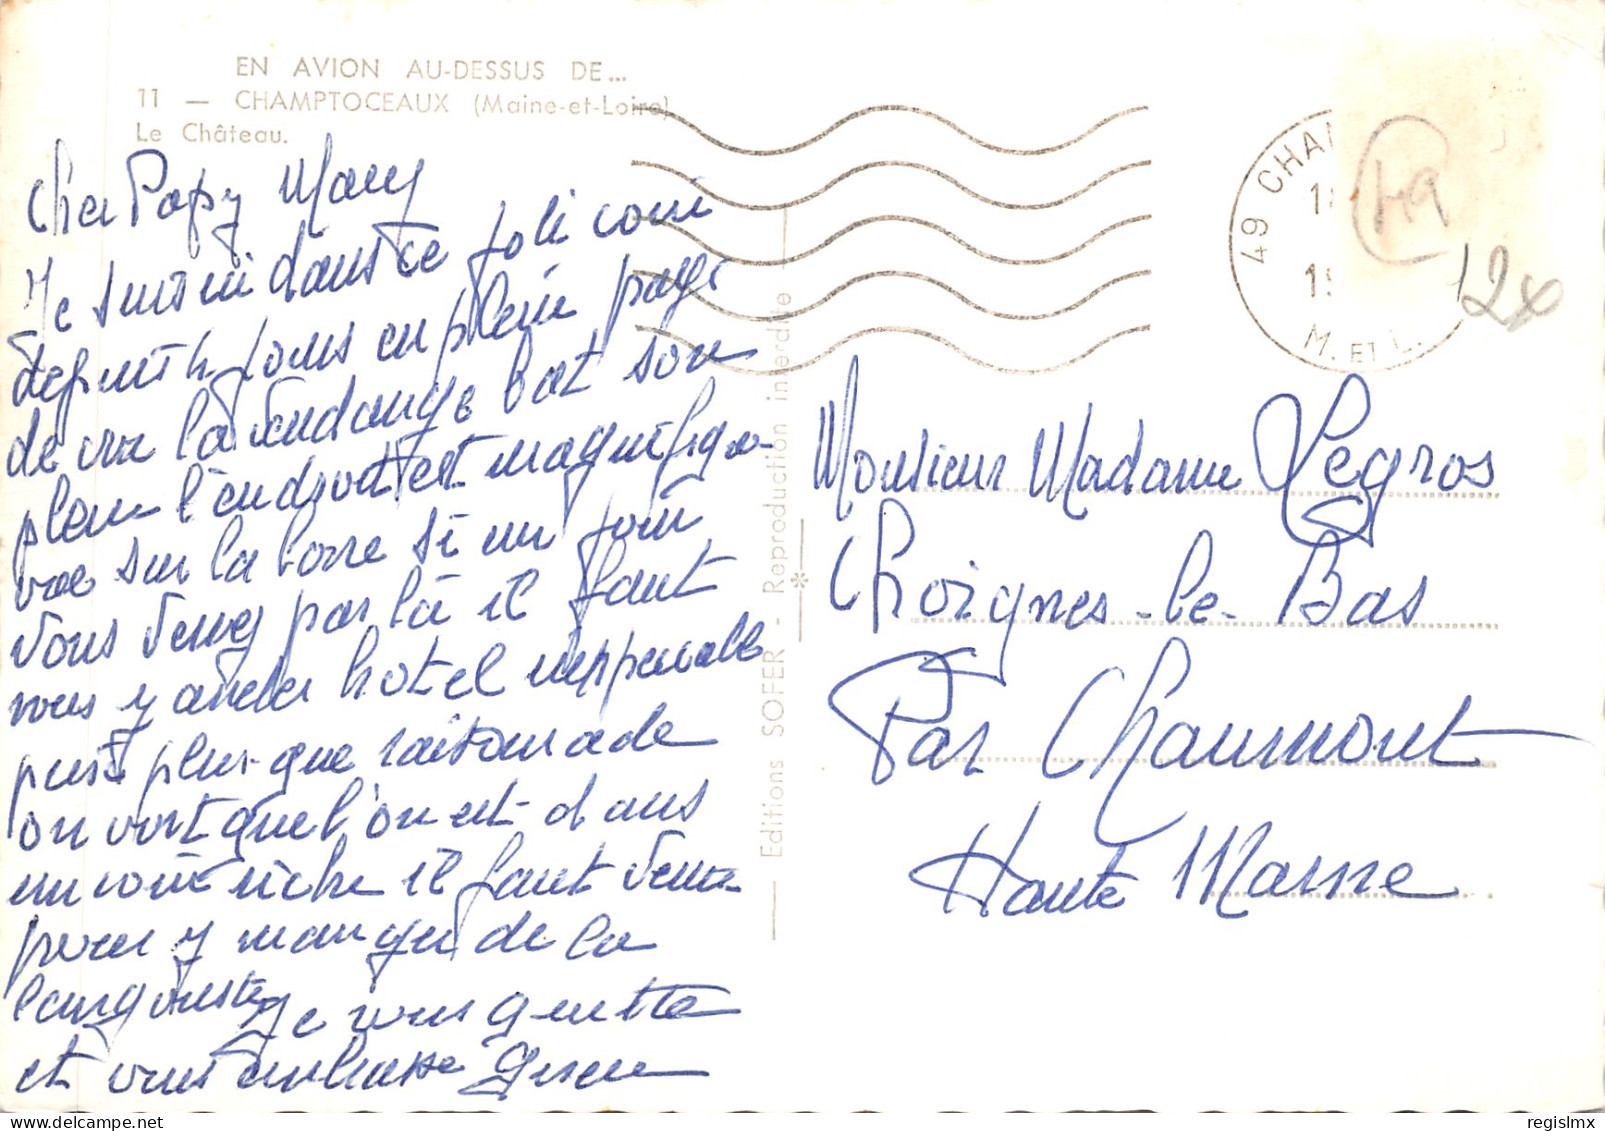 EN AVION AU-DESSUS DE...
11 — CHAMPTOCEAUX (Maine-et-Loire)
Le Château.
Cher Papy Mamy
Je suis ici dans ce joli coin
depuis h jours en plein pays
de vin la vendange bat son
plein l'endroit est magnifique
vue sur la Loire si un jour
vous venez par là il faut
vous y arrêter hotel impeccable
plus que raisonnable
on voit que l'on est dans
un coin riche il faut venir
pour y manger de la
langouste Je vous quitte
et vous embrasse
Editions SOFER - Reproduction interdite
49 CHAM
18
19
M. ET L.
49
12x
Monsieur Madame Legros
Choignes-le-Bas
Par Chaumont
Haute Marne
regislmx